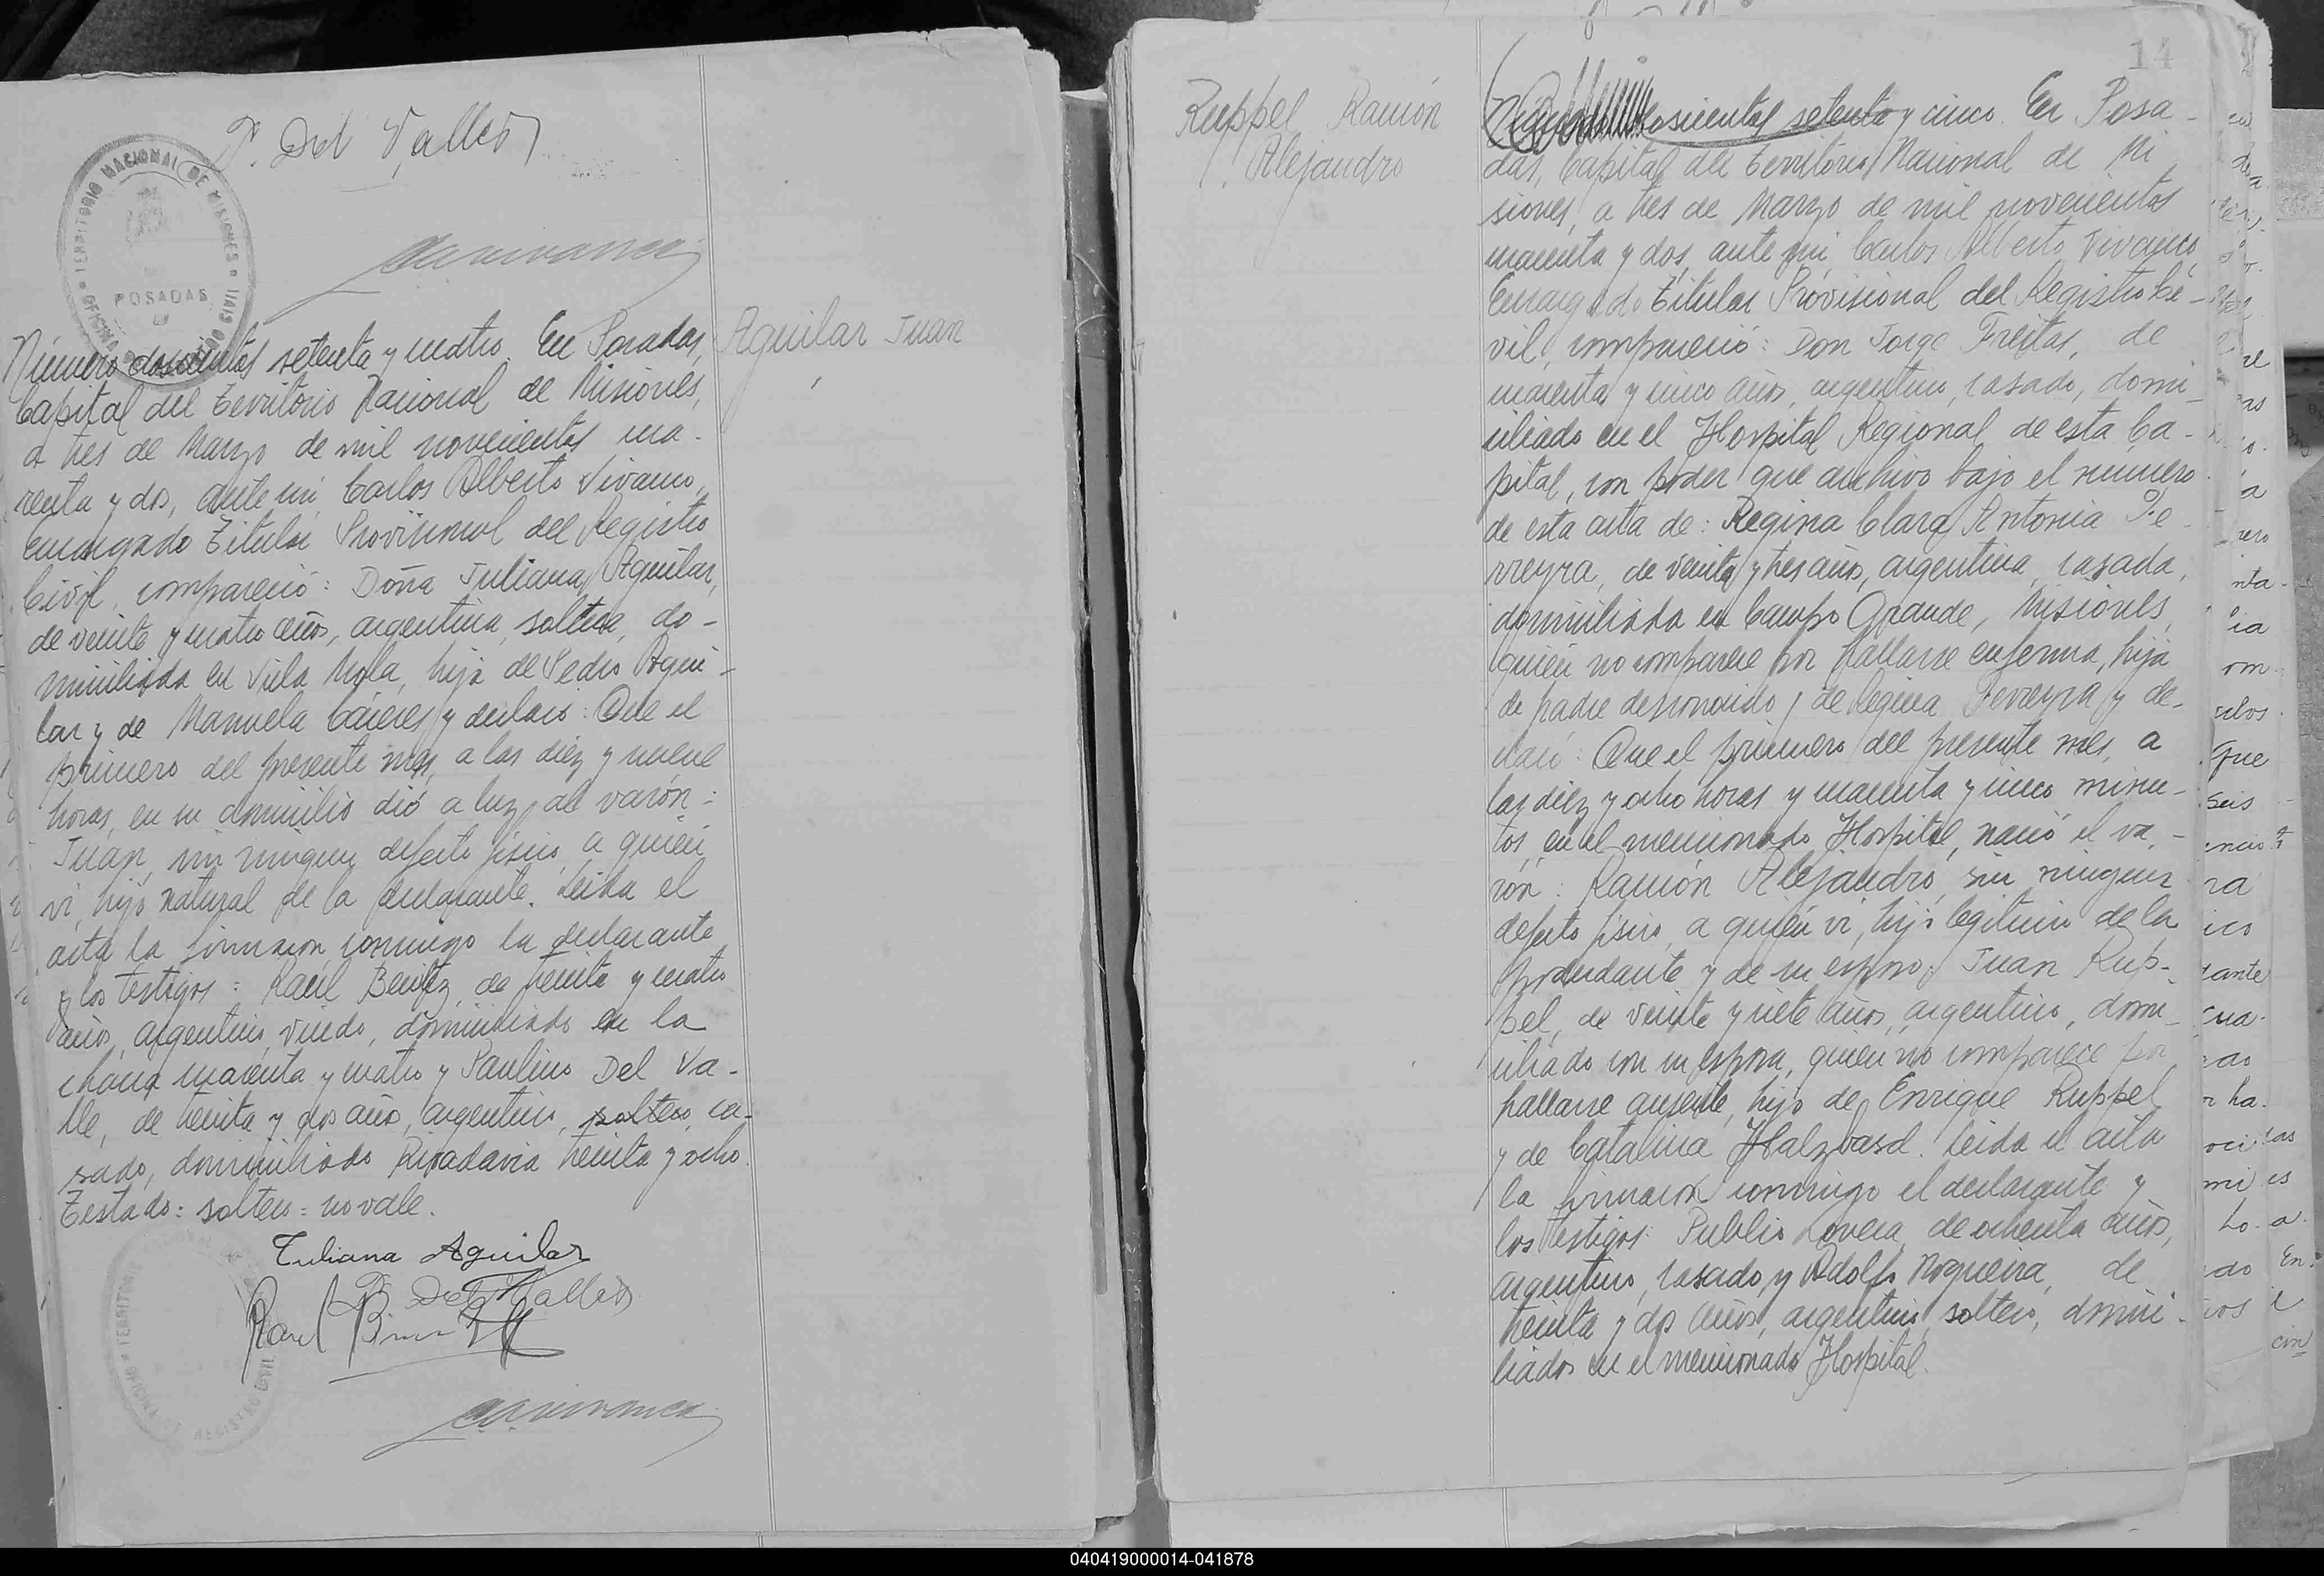 P. Del Valles
TERRITORIO NACIONAL DE MISIONES
POSADAS
Número doscientos setenta y cuatro. En Posadas,
Capital del Territorio Nacional de Misiones,
a tres de Marzo de mil novecientos cua-
renta y dos, ante mi, Carlos Alberto Vivanco,
Encargado Titular Provisional del Registro
Civil, compareció: Doña Juliana Aguilar,
de veinte y cuatro años, argentina, soltera, do-
miciliada en Villa Mola, hija de Pedro Agui-
lar y de Manuela Cáceres y declaró: Que el
primero del presente mes, a las diez y nueve
horas, en su domicilio dió a luz, al varón:
Juan, sin ningun defecto físico, a quién
ví, hijo natural de la declarante. Leída el
acta la firmaron conmigo la declarante
y los testigos: Raúl Benitez, de treinta y cuatro
años, argentino, viudo, domiciliado en la
chacra cuarenta y cuatro y Paulino Del Va-
lle, de treinta y dos años, argentino, soltero, ca-
sado, domiciliado Rivadavia treinta y ocho.
Testado: soltero = no vale.
Juliana Aguilar
P. Del Valles
Raul
Aguilar Juan
14
Ruppel Ramón
Alejandro
Número doscientos setenta y cinco. En Posa-
das, Capital del Territorio Nacional de Mi
siones, a tres de Marzo de mil novecientos
cuarenta y dos, ante mi, Carlos Alberto Vivanco,
Encargado Titular Provisional del Registro Ci-
vil, compareció: Don Jorge Freitas, de
cuarenta y cinco años, argentino, casado, domi-
ciliado en el Hospital Regional de esta Ca-
pital, con poder que archivo bajo el número
de esta acta de: Regina Clara Antonia Fe-
rreyra, de veinte y tres años, argentina, casada,
domiciliada en Campo Grande, Misiones,
quien no comparece por hallarse enferma, hija
de padre desconocido y de Regina Ferreyra y de-
claró: Que el primero del presente mes, a
las diez y ocho horas y cuarenta y cinco minu-
tos, en el mencionado Hospital, nació el va-
rón: Ramón Alejandro, sin ningun
defecto físico, a quién ví, hijo legítimo de la
poderdante y de su esposo: Juan Rup-
pel, de veinte y siete años, argentino, domi-
ciliado con su esposa, quien no comparece por
hallarse ausente, hijo de Enrique Ruppel
y de Catalina Halzvasd. Leída el acta
la firmaron conmigo el declarante y
los testigos: Publio Lovera, de ochenta años,
argentino, casado, y Adolfo Nogueira, de
treinta y dos años, argentino, soltero, domici-
liados en el mencionado Hospital.
040419000014-041878